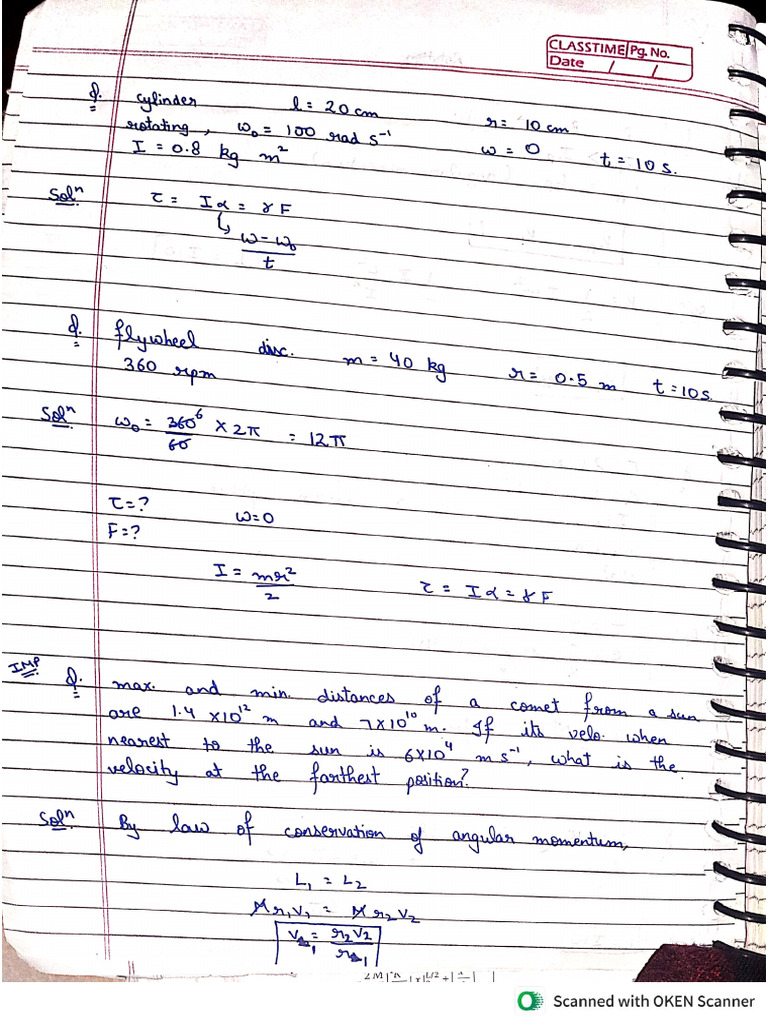 CLASSTIME Pg. No.
Date / /
Q. cylinder l = 20 cm r = 10 cm
rotating, ω₀ = 100 rad s⁻¹ ω = 0 t = 10 s.
I = 0.8 kg m²
Solⁿ τ = Iα = rF
ω - ω₀
t
Q. flywheel disc. m = 40 kg r = 0.5 m t = 10 s.
360 rpm
Solⁿ ω₀ = 360⁶/60 × 2π = 12π
τ = ?
F = ? ω = 0
I = mr²/2 τ = Iα = rF
IMP Q. max. and min. distances of a comet from a sun
are 1.4 × 10¹² m and 7 × 10¹⁰ m. If its velo. when
nearest to the sun is 6 × 10⁴ m s⁻¹, what is the
velocity at the farthest position?
Solⁿ By law of conservation of angular momentum,
L₁ = L₂
M r₁ v₁ = M r₂ v₂
v₁ = r₂ v₂ / r₁
Scanned with OKEN Scanner